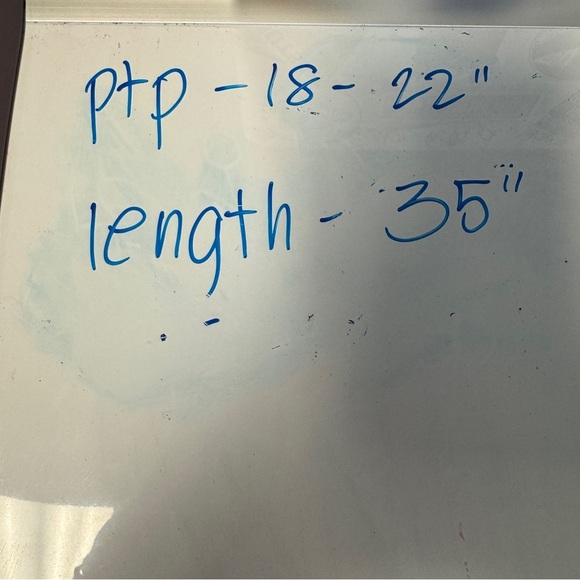 ptp - 18 - 22"
length - 35"